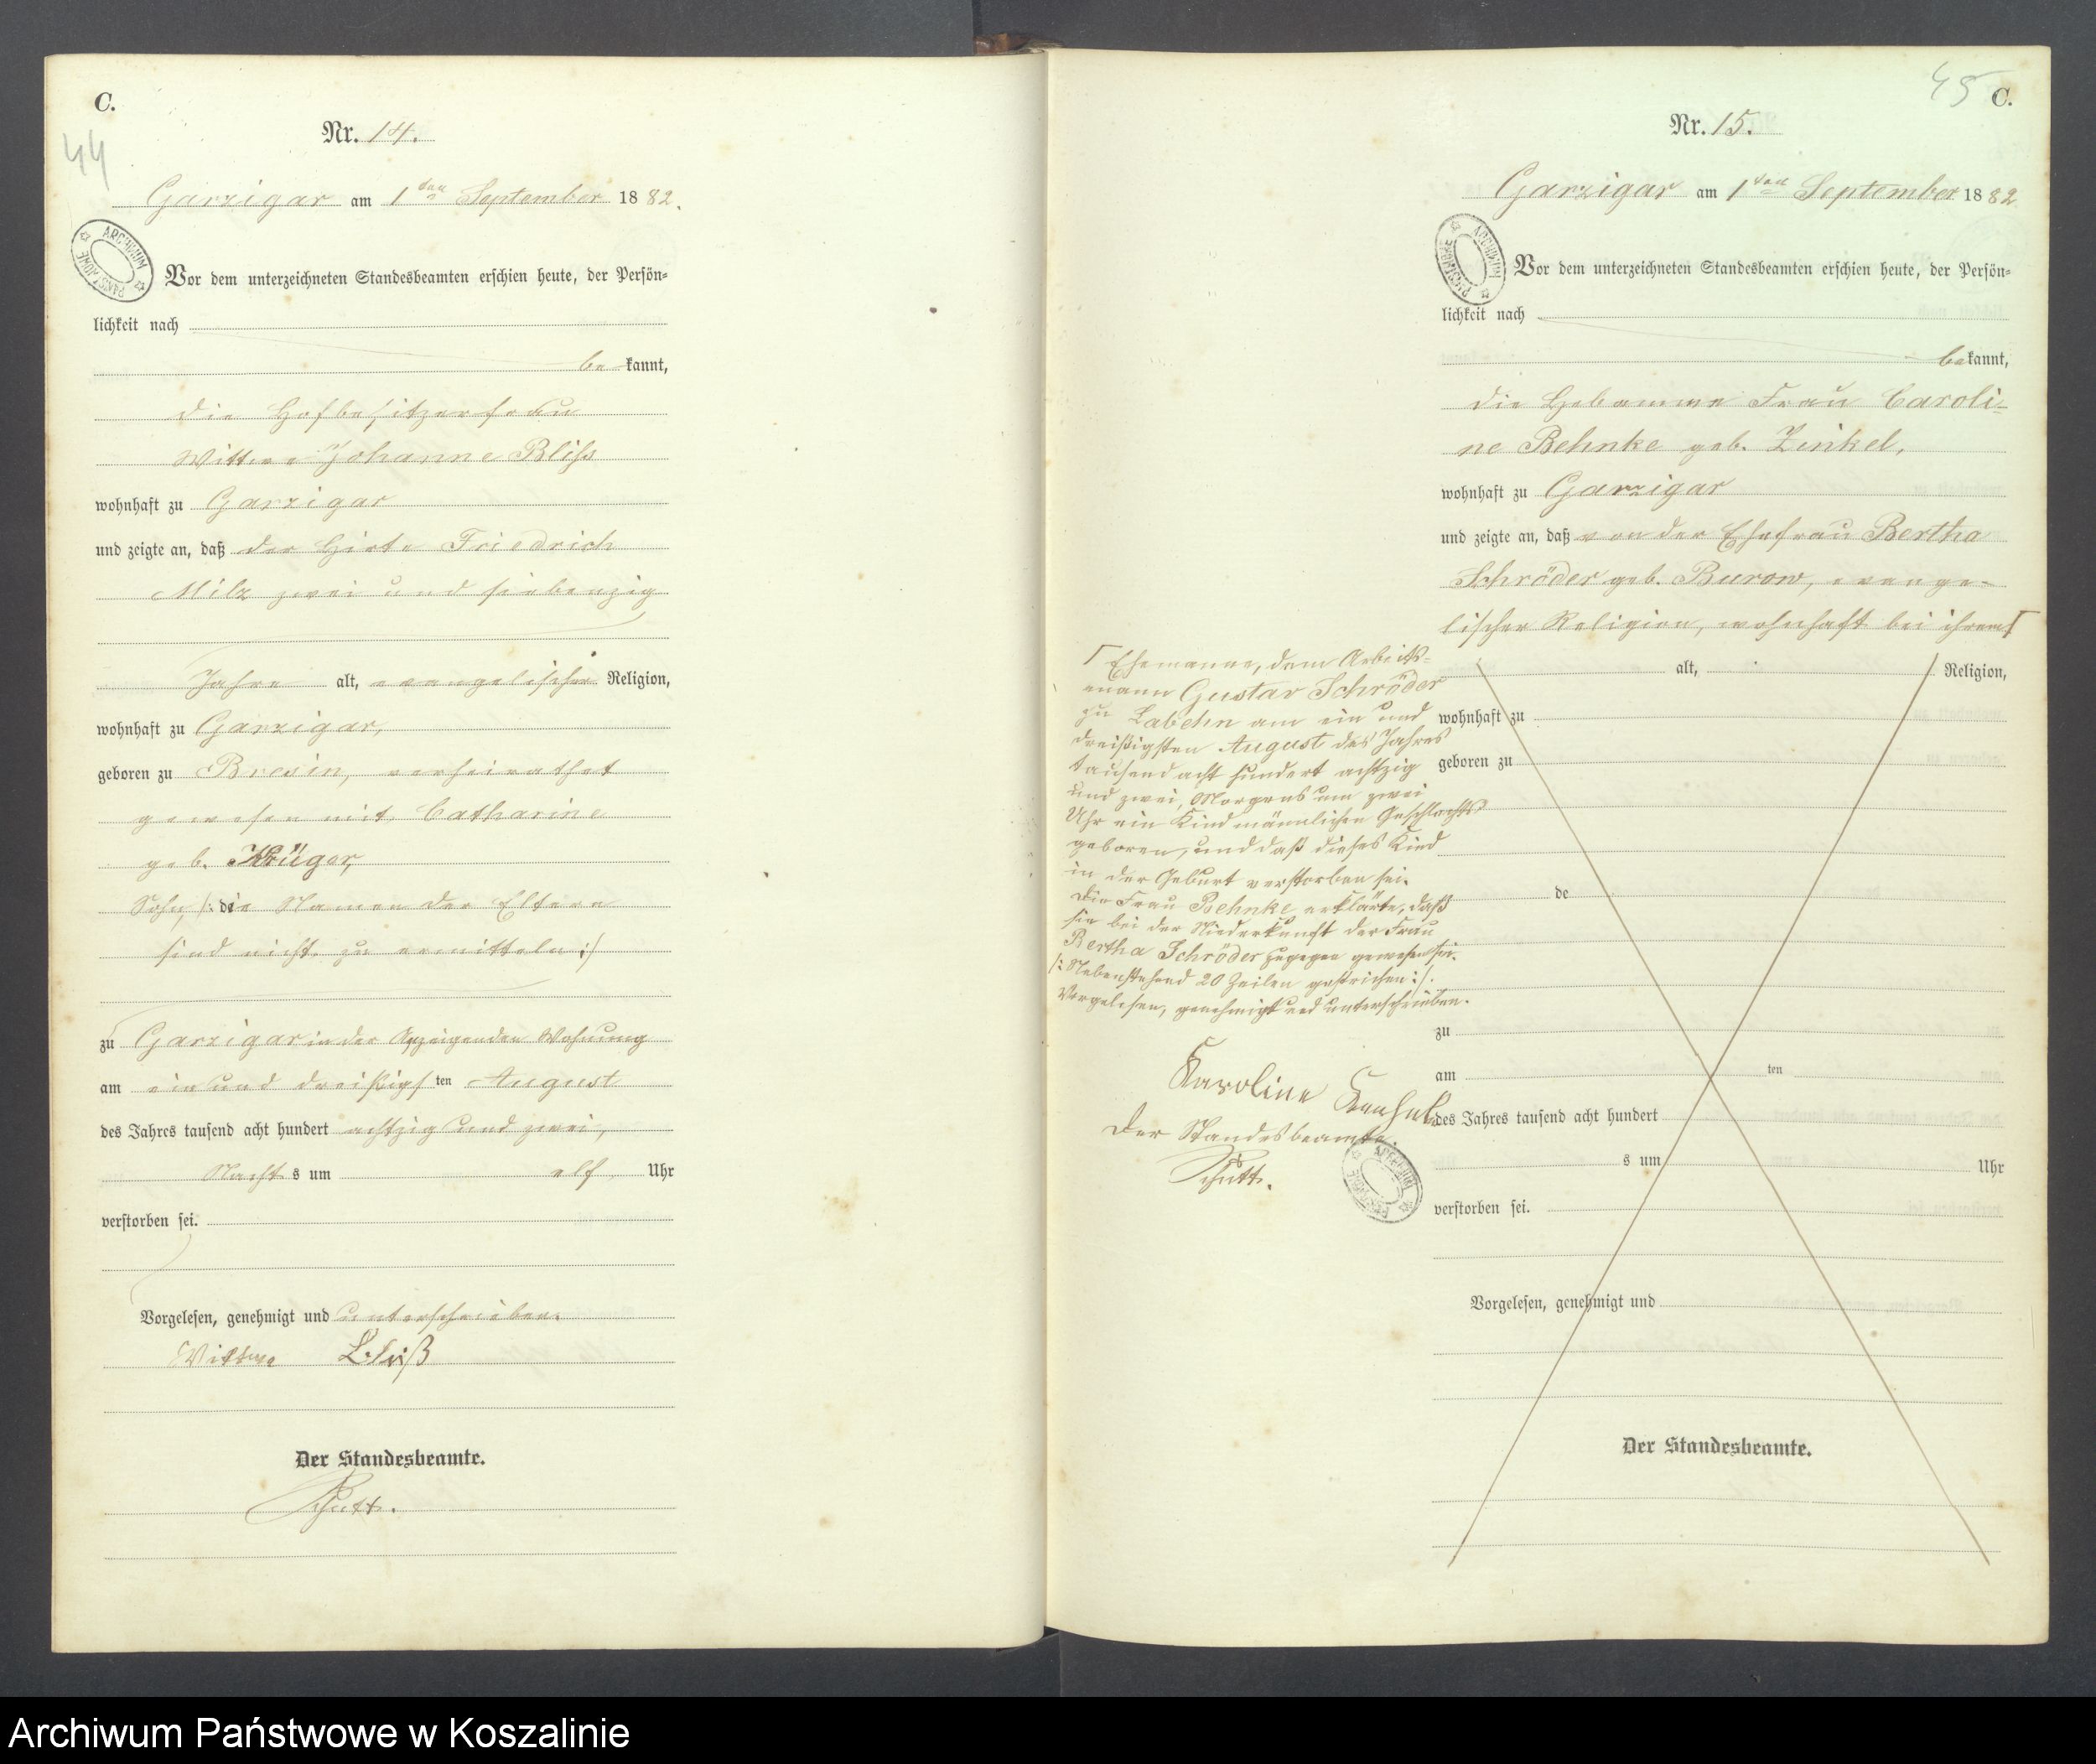 C.
44
Nr. 14.
Garzigar am 1ten September 1882.
ARCHIWUM PAŃSTWOWE
Vor dem unterzeichneten Standesbeamten erschien heute, der Persön-
lichkeit nach
be kannt,
die Hofbesitzerfrau
Wittwe Johanne Bliss
wohnhaft zu Garzigar
und zeigte an, daß der Hirte Friedrich
Milz zwei und siebenzig
Jahre alt, evangelischer Religion,
wohnhaft zu Garzigar,
geboren zu Bresin, verheirathet
gewesen mit Catharine
geb. Krüger,
Sohn /: die Namen der Eltern
sind nicht zu ermitteln :/
zu Garzigar in der Anzeigenden Wohnung
am ein und dreißigsten August
des Jahres tausend acht hundert achtzig und zwei,
Nachts um elf Uhr
verstorben sei.
Vorgelesen, genehmigt und unterschrieben.
Wittwe Bliß
Der Standesbeamte.
Schütt.
45 C.
Nr. 15.
Garzigar am 1ten September 1882
ARCHIWUM PAŃSTWOWE
Vor dem unterzeichneten Standesbeamten erschien heute, der Persön-
lichkeit nach
bekannt,
die Hebamme Frau Caroli-
ne Behnke geb. Zinkel,
wohnhaft zu Garzigar
und zeigte an, daß von der Ehefrau Bertha
Schröder geb. Burow, evange-
lischer Religion, wohnhaft bei ihrem
Ehemanne, dem Arbeits-
mann Gustav Schröder
zu Labehn am ein und
dreißigsten August des Jahres
tausend acht hundert achtzig
und zwei, Morgens um zwei
Uhr ein Kind männlichen Geschlechts
geboren, und daß dieses Kind
in der Geburt verstorben sei.
Die Frau Behnke erklärte, daß
sie bei der Niederkunft der Frau
Bertha Schröder zugegen gewesen sei.
/: Nebenstehend 20 Zeilen gestrichen :/.
Vorgelesen, genehmigt und unterschrieben.
Karoline
Der Standesbeamte.
Schütt.
ARCHIWUM PAŃSTWOWE
alt, Religion,
wohnhaft zu
geboren zu
de
zu
am ten
des Jahres tausend acht hundert
s um Uhr
verstorben sei.
Vorgelesen, genehmigt und
Der Standesbeamte.
Archiwum Państwowe w Koszalinie